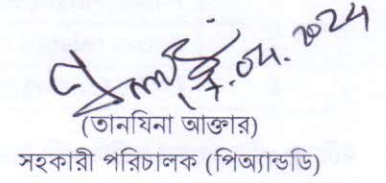 .04.2024
(তানযিনা আক্তার)
সহকারী পরিচালক (পিঅ্যান্ডডি)